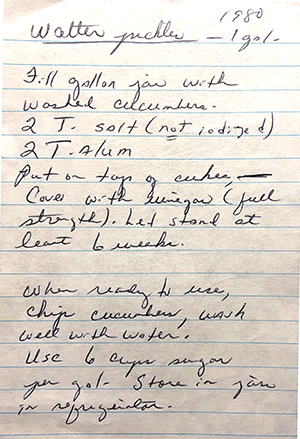 1980
Walter pickles – 1 gal.
Fill gallon jar with
washed cucumbers.
2 T. salt (not iodized)
2 T. Alum
Put on top of cukes, —
Cover with vinegar (full
strength). Let stand at
least 6 weeks.
When ready to use,
chip cucumbers, wash
well with water.
Use 6 cups sugar
per gal. Store in jars
in refrigerator.